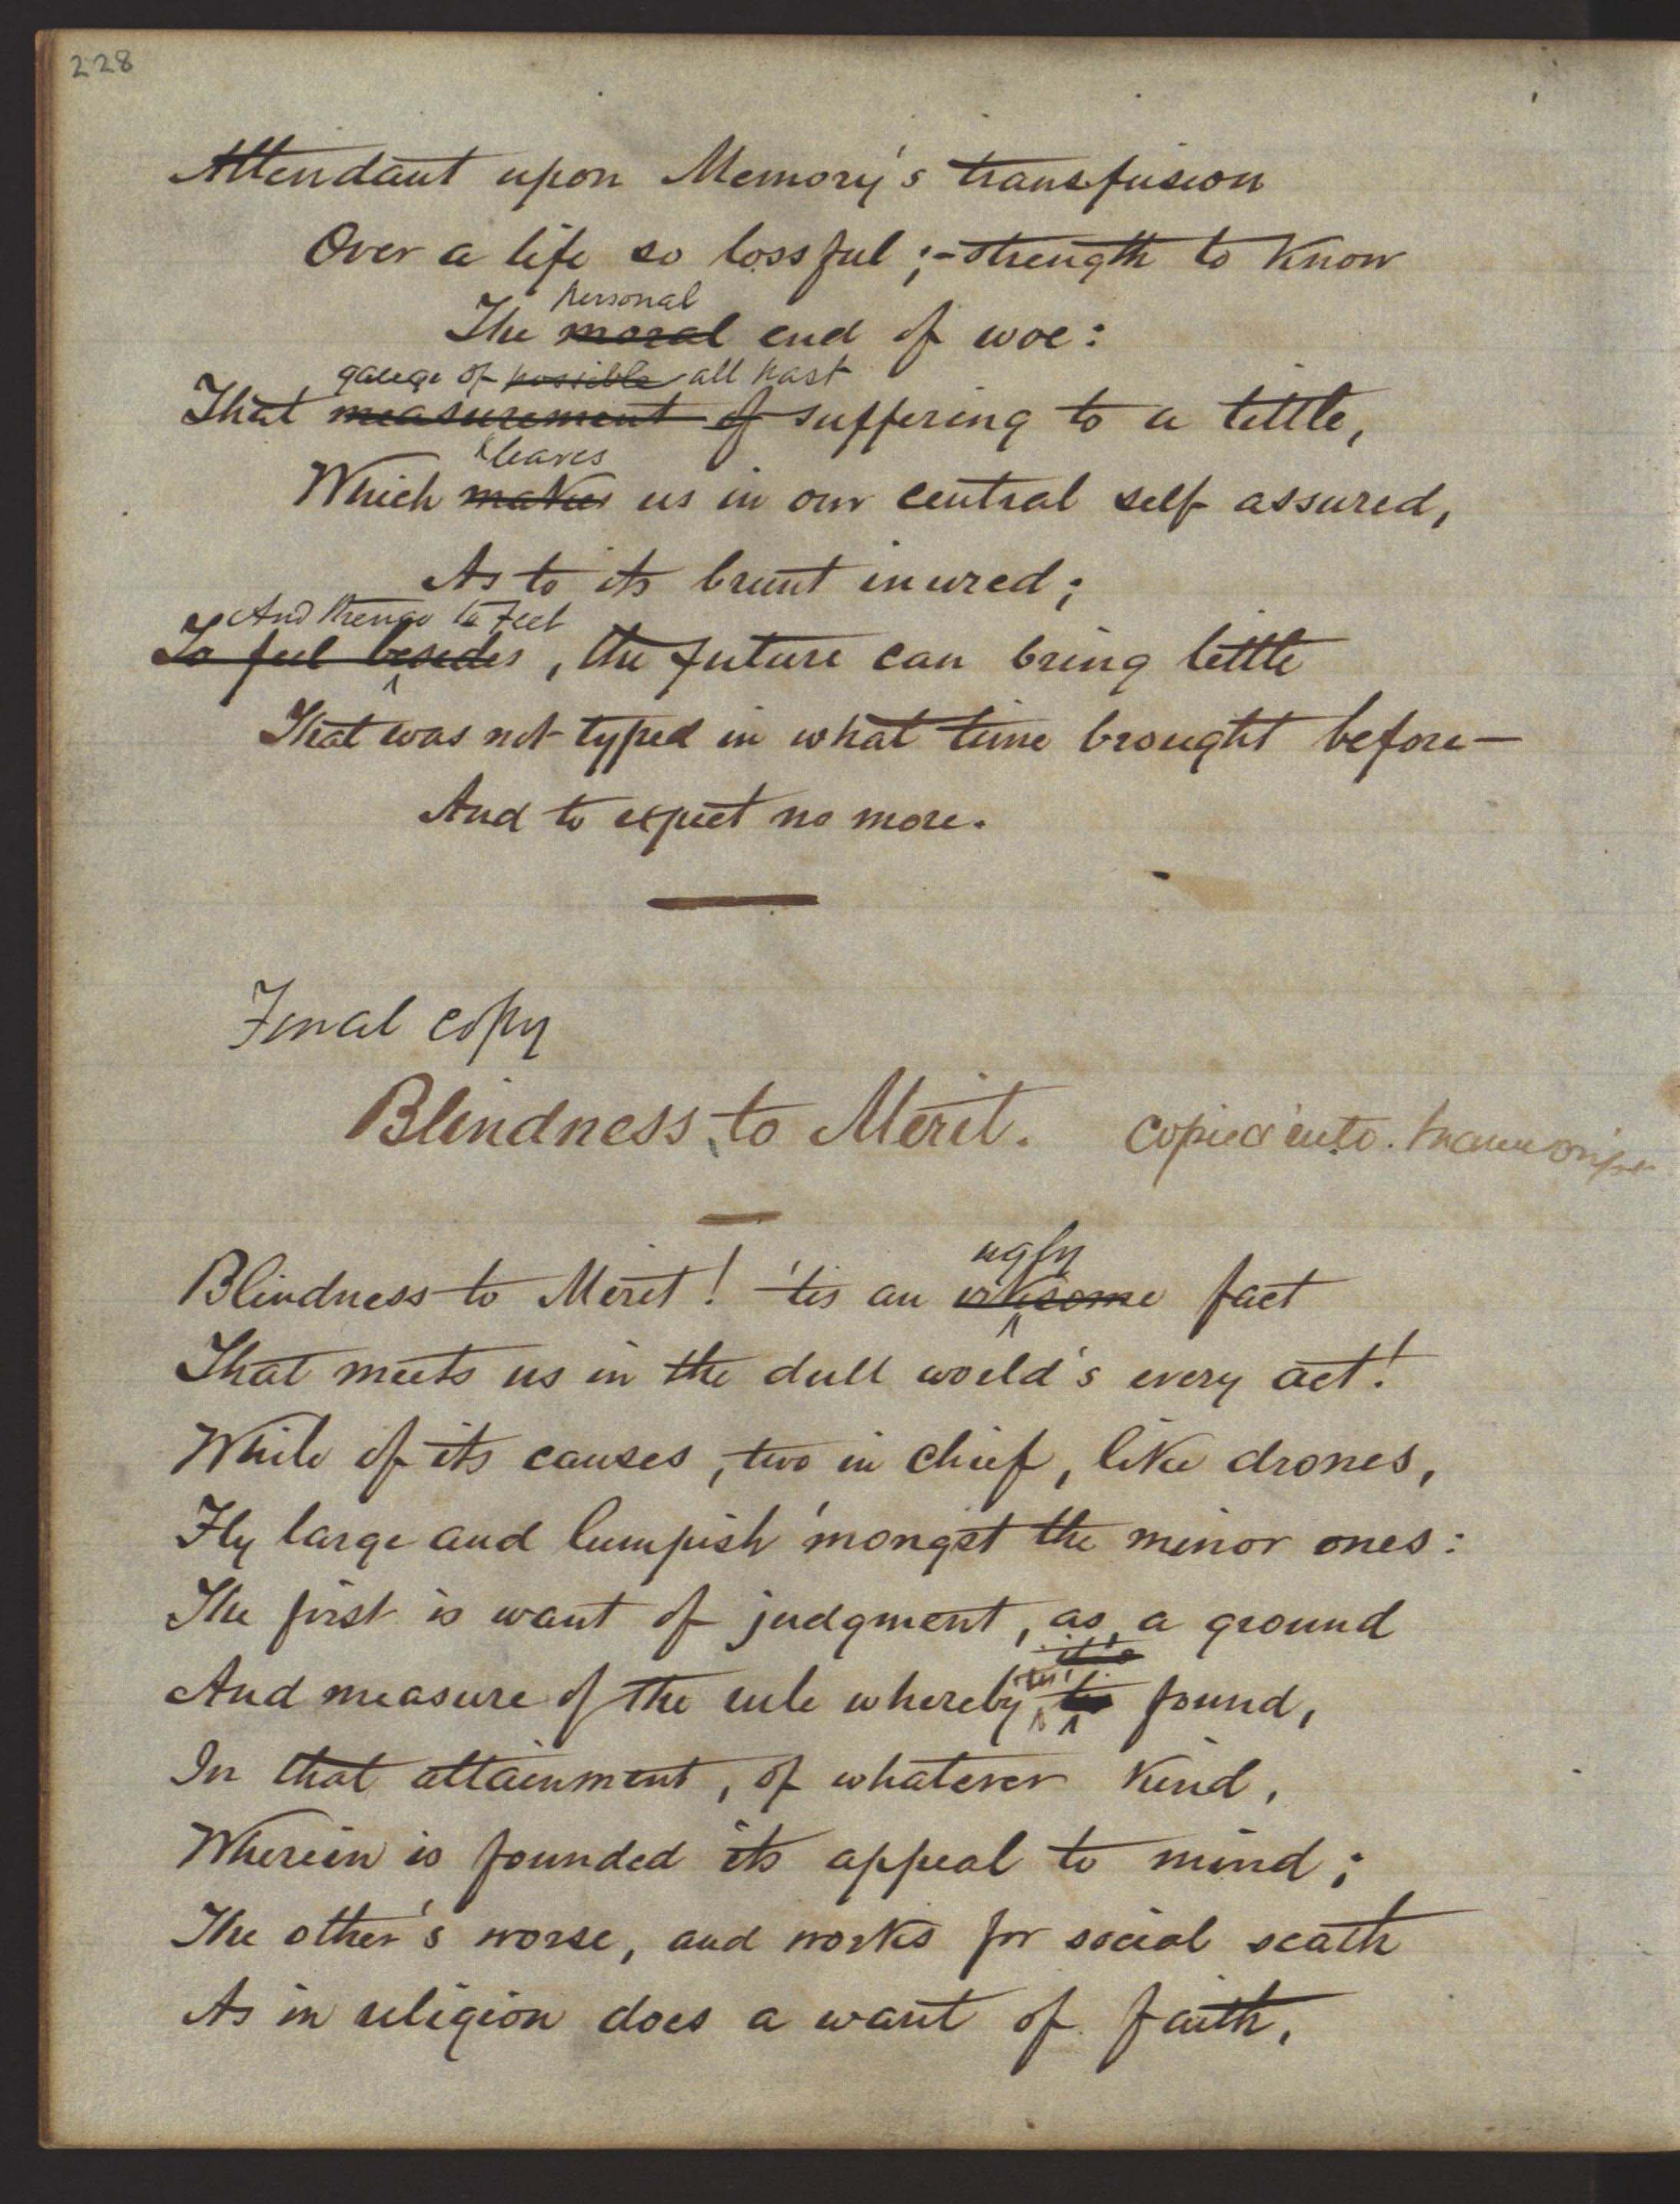 228
Attendant upon Memory's transfusion
Over a life so lossful;- strength to know
personal
The moral end of woe:
gauge of possible all past
That measurement of suffering to a tittle,
leaves
Which makes us in our central self assured,
As to its brunt inured;
And thence to feel
To feel besides, the future can bring little
That was not typed in what time brought before—
And to expect no more.
Final copy
Blindness to Merit. Copied into. Manuscript
ugly
Blindness to Merit! 'tis an irksome fact
That meets us in the dull world's every act!
While of its causes, two in chief, like drones,
Fly large and lumpish 'mongst the minor ones:
The first is want of judgment, as, a ground
it's
And measure of the rule whereby 'tis found,
In that attainment, of whatever kind,
Wherein is founded its appeal to mind;
The other's worse, and works for social scath
As in religion does a want of faith,